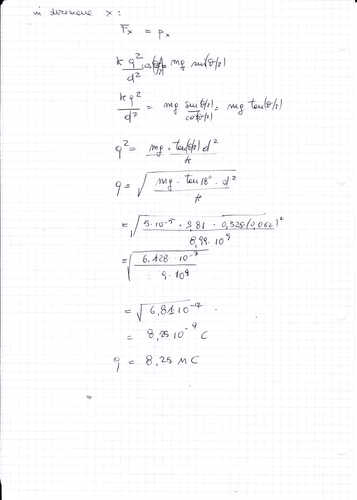 in direzione x:
Fx = Px
k q² / d² cos(θ/2) = mg sin(θ/2)
k q² / d² = mg sin(θ/2) / cos(θ/2) = mg tan(θ/2)
q² = mg · tan(θ/2) d² / k
q = √(mg · tan 18° · d² / k)
= √(5·10⁻⁵ · 9,81 · 0,325 (0,062)² / 8,99 · 10⁹)
= √(6.128 · 10⁻⁷ / 9 · 10⁹)
= √(6,81 10⁻¹⁷)
= 8,25 10⁻⁹ C
q = 8,25 nC
=